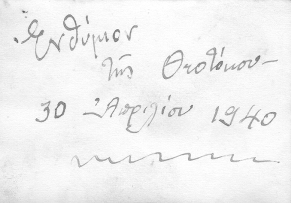 Ἐνθύμιον
τῆς Θεοτόκου —
30 Ἀπριλίου 1940